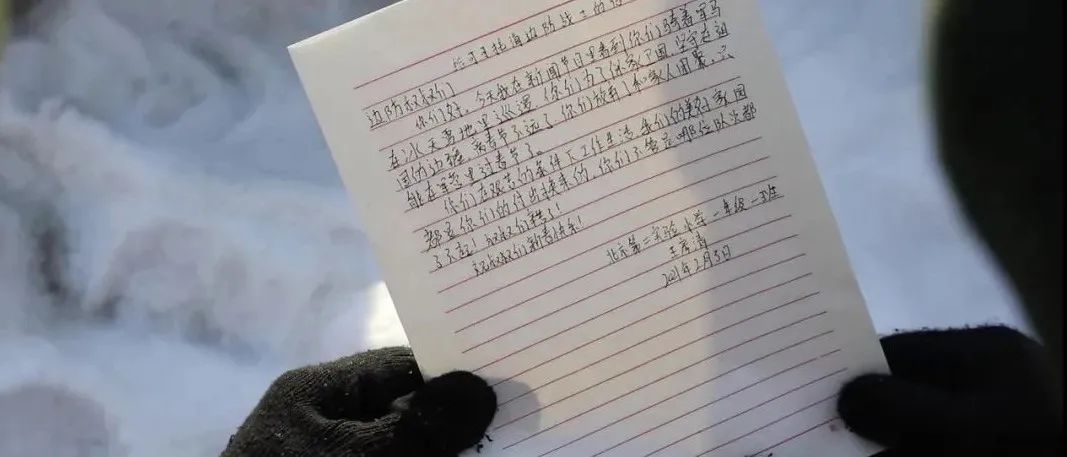 给可可托海边防战士的信
边防叔叔们
你们好,今天我在新闻节目里看到你们骑着军马
在冰天雪地里巡逻,你们为了保家卫国,坚守在祖
国的边疆,离春节不远了,你们放弃了和家人团聚,只
能在军营里过春节了。
你们在艰苦的条件下工作生活,我们的美好家园
都是你们的付出换来的,你们不管是哪位队员都
了不起!叔叔们辛苦了!
祝叔叔们新春快乐!
北京第二实验小学一年级一班
2021年2月3日